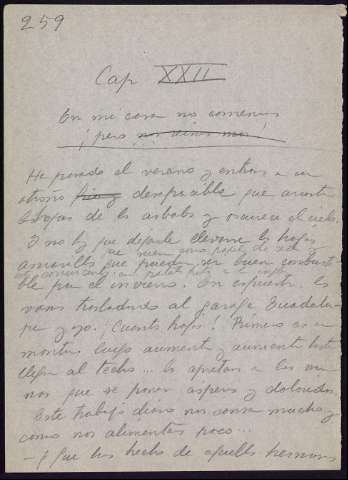 259
Cap XXII
En mi casa no comemos
¡pero nos reimos mas!
Ha pasado el verano y entra un
otoño frio y desapacible que arrastra
las hojas de los arboles y oscurece el cielo
Y no hay que dejarle llevarse las hojas
amarillas que pueden ser buen combusti-
ble para el invierno. En espuertas las
vamos trasladando al garage Guadalu-
pe y yo. ¡Cuantas hojas! Primero es un
monton, luego aumenta y aumenta hasta
llegar al techo... las apretamos a las ma-
nos que se ponen asperas y doloridas
Este trabajo diario nos cansa mucho y
como nos alimentamos poco...
- ¿Que has hecho de aquellos hermosos